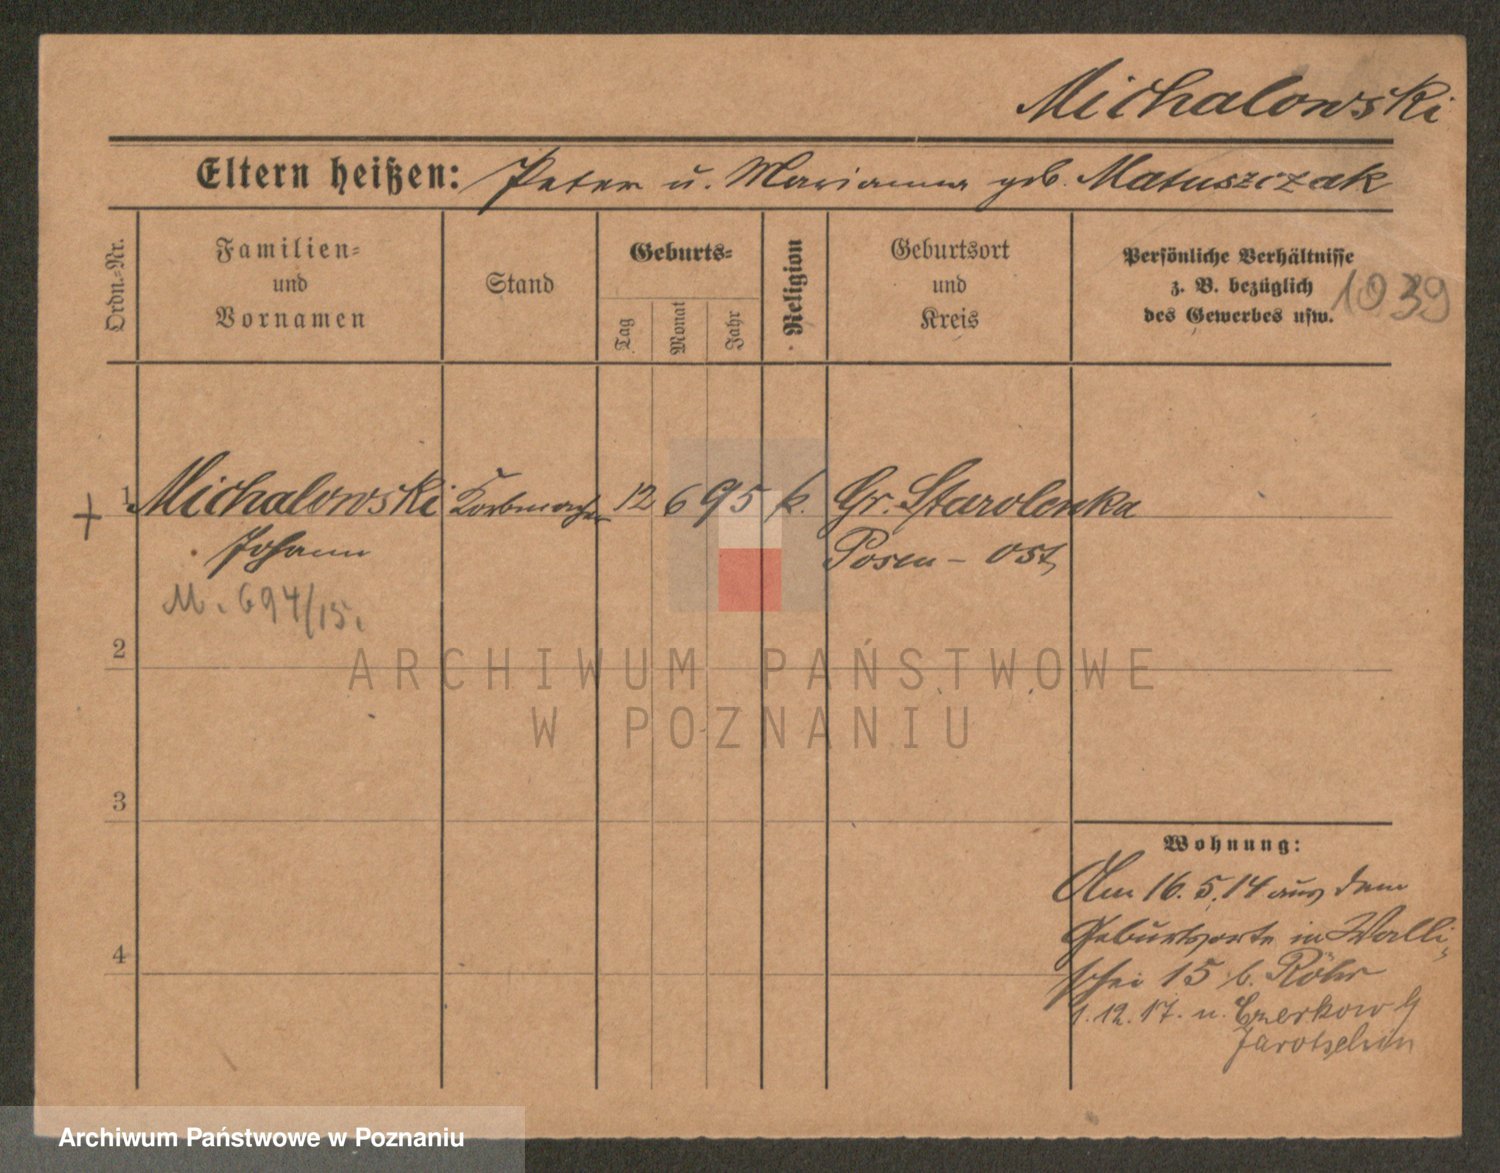 Michalowski
Eltern heißen: Peter u. Marianna geb. Matuszczak
Ordn.-Nr.
Familien-
und
Vornamen
Stand
Geburts-
Tag
Monat
Jahr
Religion
Geburtsort
und
Kreis
Persönliche Verhältnisse
z. B. bezüglich
des Gewerbes usw.
1039
+ 1 Michalowski Korbmacher 12 6 95 k. Gr. Starolenka
Johann Posen - Ost
M. 694/15.
2
ARCHIWUM PAŃSTWOWE
W POZNANIU
3
Wohnung:
Am 16.5.14 aus dem
Geburtsorte in Walli-
4
schei 15 b. Röhr
1.12.17. n. Czerkow
Jarotschin
Archiwum Państwowe w Poznaniu